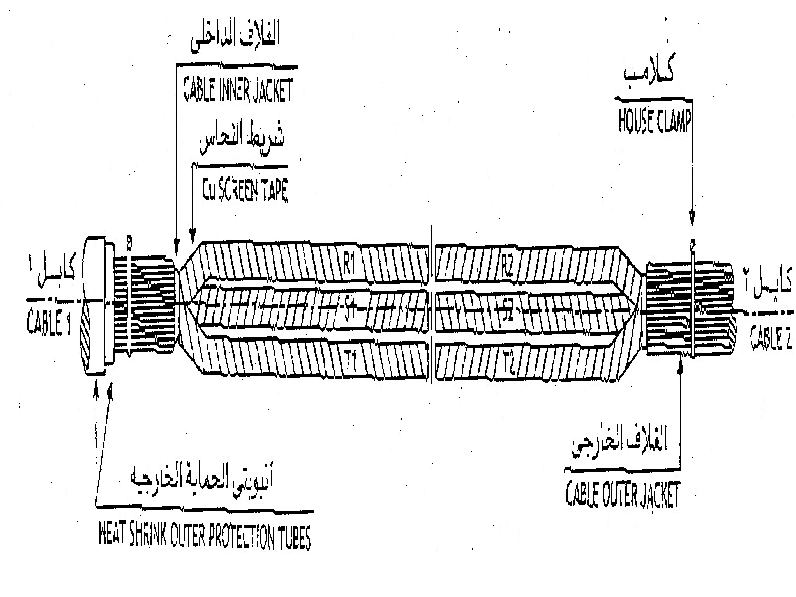 الغلاف الداخلى
CABLE INNER JACKET
شريط النحاس
Cu SCREEN TAPE
كلامب
HOUSE CLAMP
كابل ١
CABLE 1
R1
R2
S1
S2
T1
T2
كابل ٢
CABLE 2
الغلاف الخارجى
CABLE OUTER JACKET
أنبوبتى الحماية الخارجيه
HEAT SHRINK OUTER PROTECTION TUBES